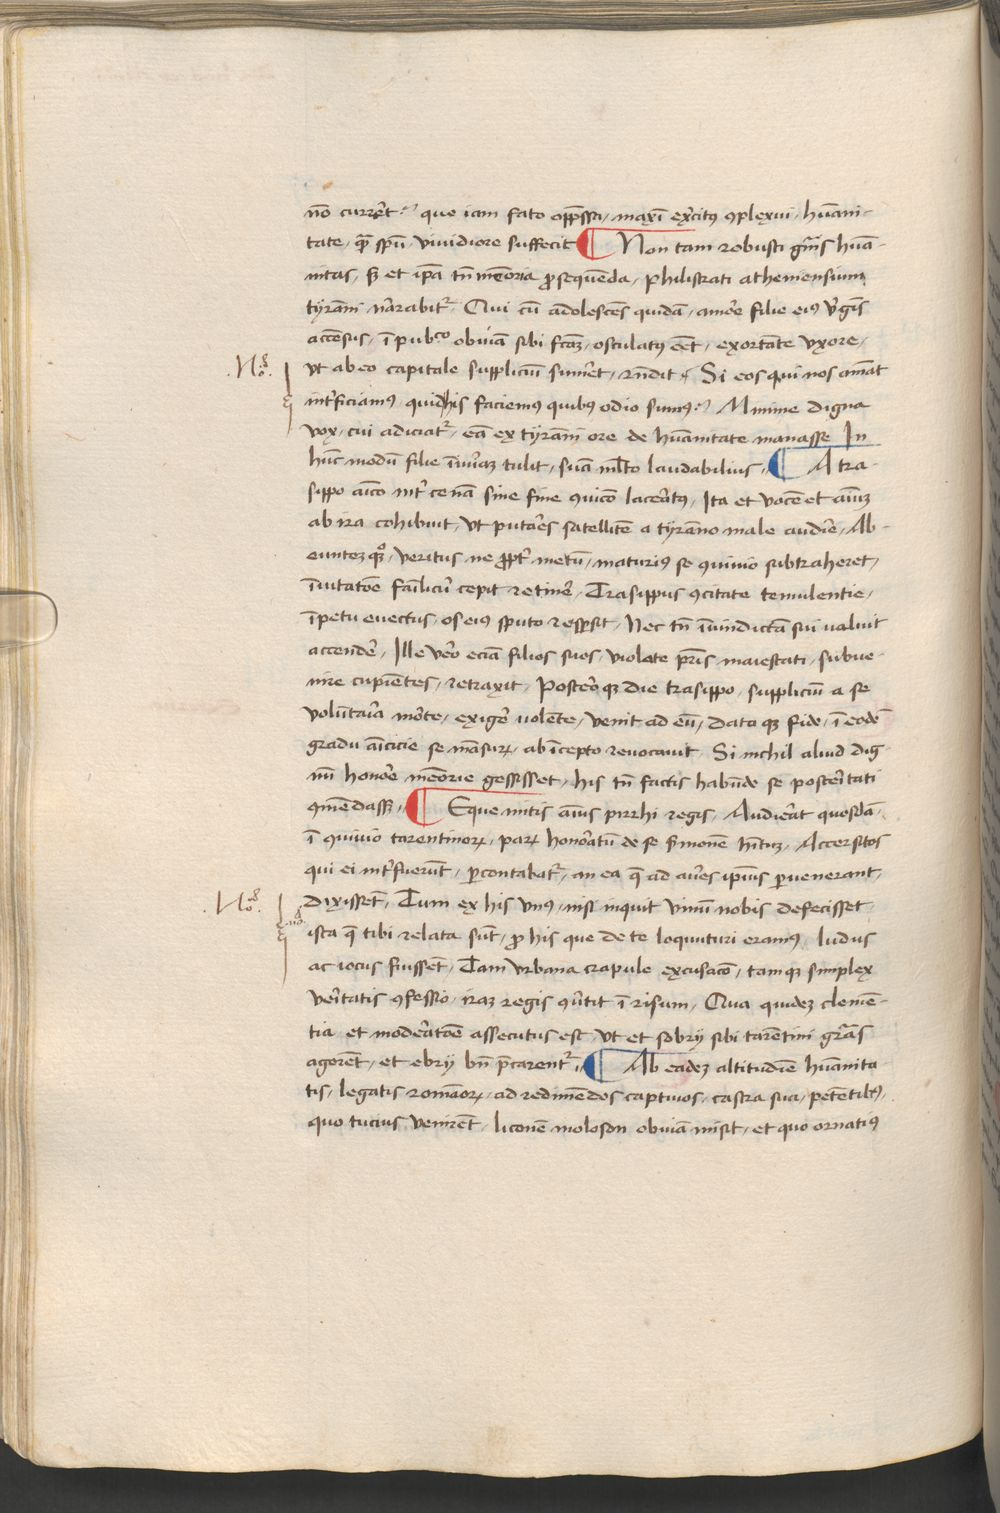 nō currēt? que iam fato opp̄ssa / maxī exērcitꝰ ꝯplexui / hūani-
tate / quā̄ sp̄u / viuidiore suffecit ¶ Non tam robusti gn̄is hūa-
nitas / sꝫ et ip̄a tn̄ memoria ꝓsequēda / Philistrati atheniensium
tyrāni / nārabit᷑ / Qui cū adolescēs quidā / amōre filie eiꝰ v̄gīs
accēsus / ī pubᶜᵒ obuiā sibi fc̄aꝫ / osculatꝰ eēt / exortāte vxore /
.Noᵃ. vt ab eo capitale suppliciū sumēt / rn̄dit / Si eos qui nos amāt
int̄ficiamꝰ / quid his faciemꝰ quibꝰ odio sumꝰ? Minime digna
vox / cui adiciat᷑ / eā ex tyrāni ore de hūanitate manasse In
hūc modū filie iniuriaꝫ tulit / suā ml̄to laudabilius / ¶ A tra-
sippo aīco int̄ cenā sine fine ꝯuicō lacēratꝰ / Ita et vocē et aīuꝫ
ab ira cohibuit / vt putāres satellitē a tyrāno male audīre / Ab-
euntez qꝫ / veritus ne ꝓpt̄ metū / maturiꝰ se ꝯuiuio subtraheret /
īuitatōe fāiliari cepit retinēre / Trasippus ꝯcitate temulentie /
īpetu euectus / os eiꝰ sputo respsit / Nec tn̄ ī uindictā sui valuit
accendēre / Ille vēro eciā filios suos / violate pr̄is maiestati / subue-
nire cupiētes / retraxit / Postēro qꝫ die trasippo / suppliciū a se
volūtaria mōrte / exigēre volēte / venit ad eū / data qꝫ fide / ī eodē
gradu aīcicie se māsurꝝ / ab īcepto reuocauit / Si nichil aliud dig
nū honōre memorie gessisset / his tn̄ factis habūde se postēritati
ꝯmēdasset / ¶ Eque mitis aīus pirrhi regis / Audierāt quosdā /
ī ꝯuiuio tarentinorꝝ / parꝝ honōratū de se sermonē hītuꝫ / Accersitos
qui ei int̄fuerūt / ꝑcontabat᷑ / an ea q̄ ad aūres ipsius ꝑuenerant /
.Noᵃ. dixissēt / Tum ex his vnꝰ / nisi inquit vinū nobis defecisset
ista q̄ tibi relata sūt / ꝓ his que de te loquuturi eramꝰ / ludus
ac iocus fuissēt / Tam vrbana crapule excusacō / tam qꝫ simplex
vēritatis ꝯfessio / iraꝫ regis ꝯūtit ī risum / Qua quidez clemē-
tia et modēratōe assecutus est / vt et sobrij sibi tarētini gr̄as
agerēt / et ebrij bn̄ p̄carent᷑ / ¶ Ab eadeꝫ altitudīe hūanita
tis / legatis romāorꝝ / ad redimēdos captiuos / castra sua / petētibꝰ /
quo tucius venirēt / liconē moloson obuiā misit / et quo ornatiꝰ